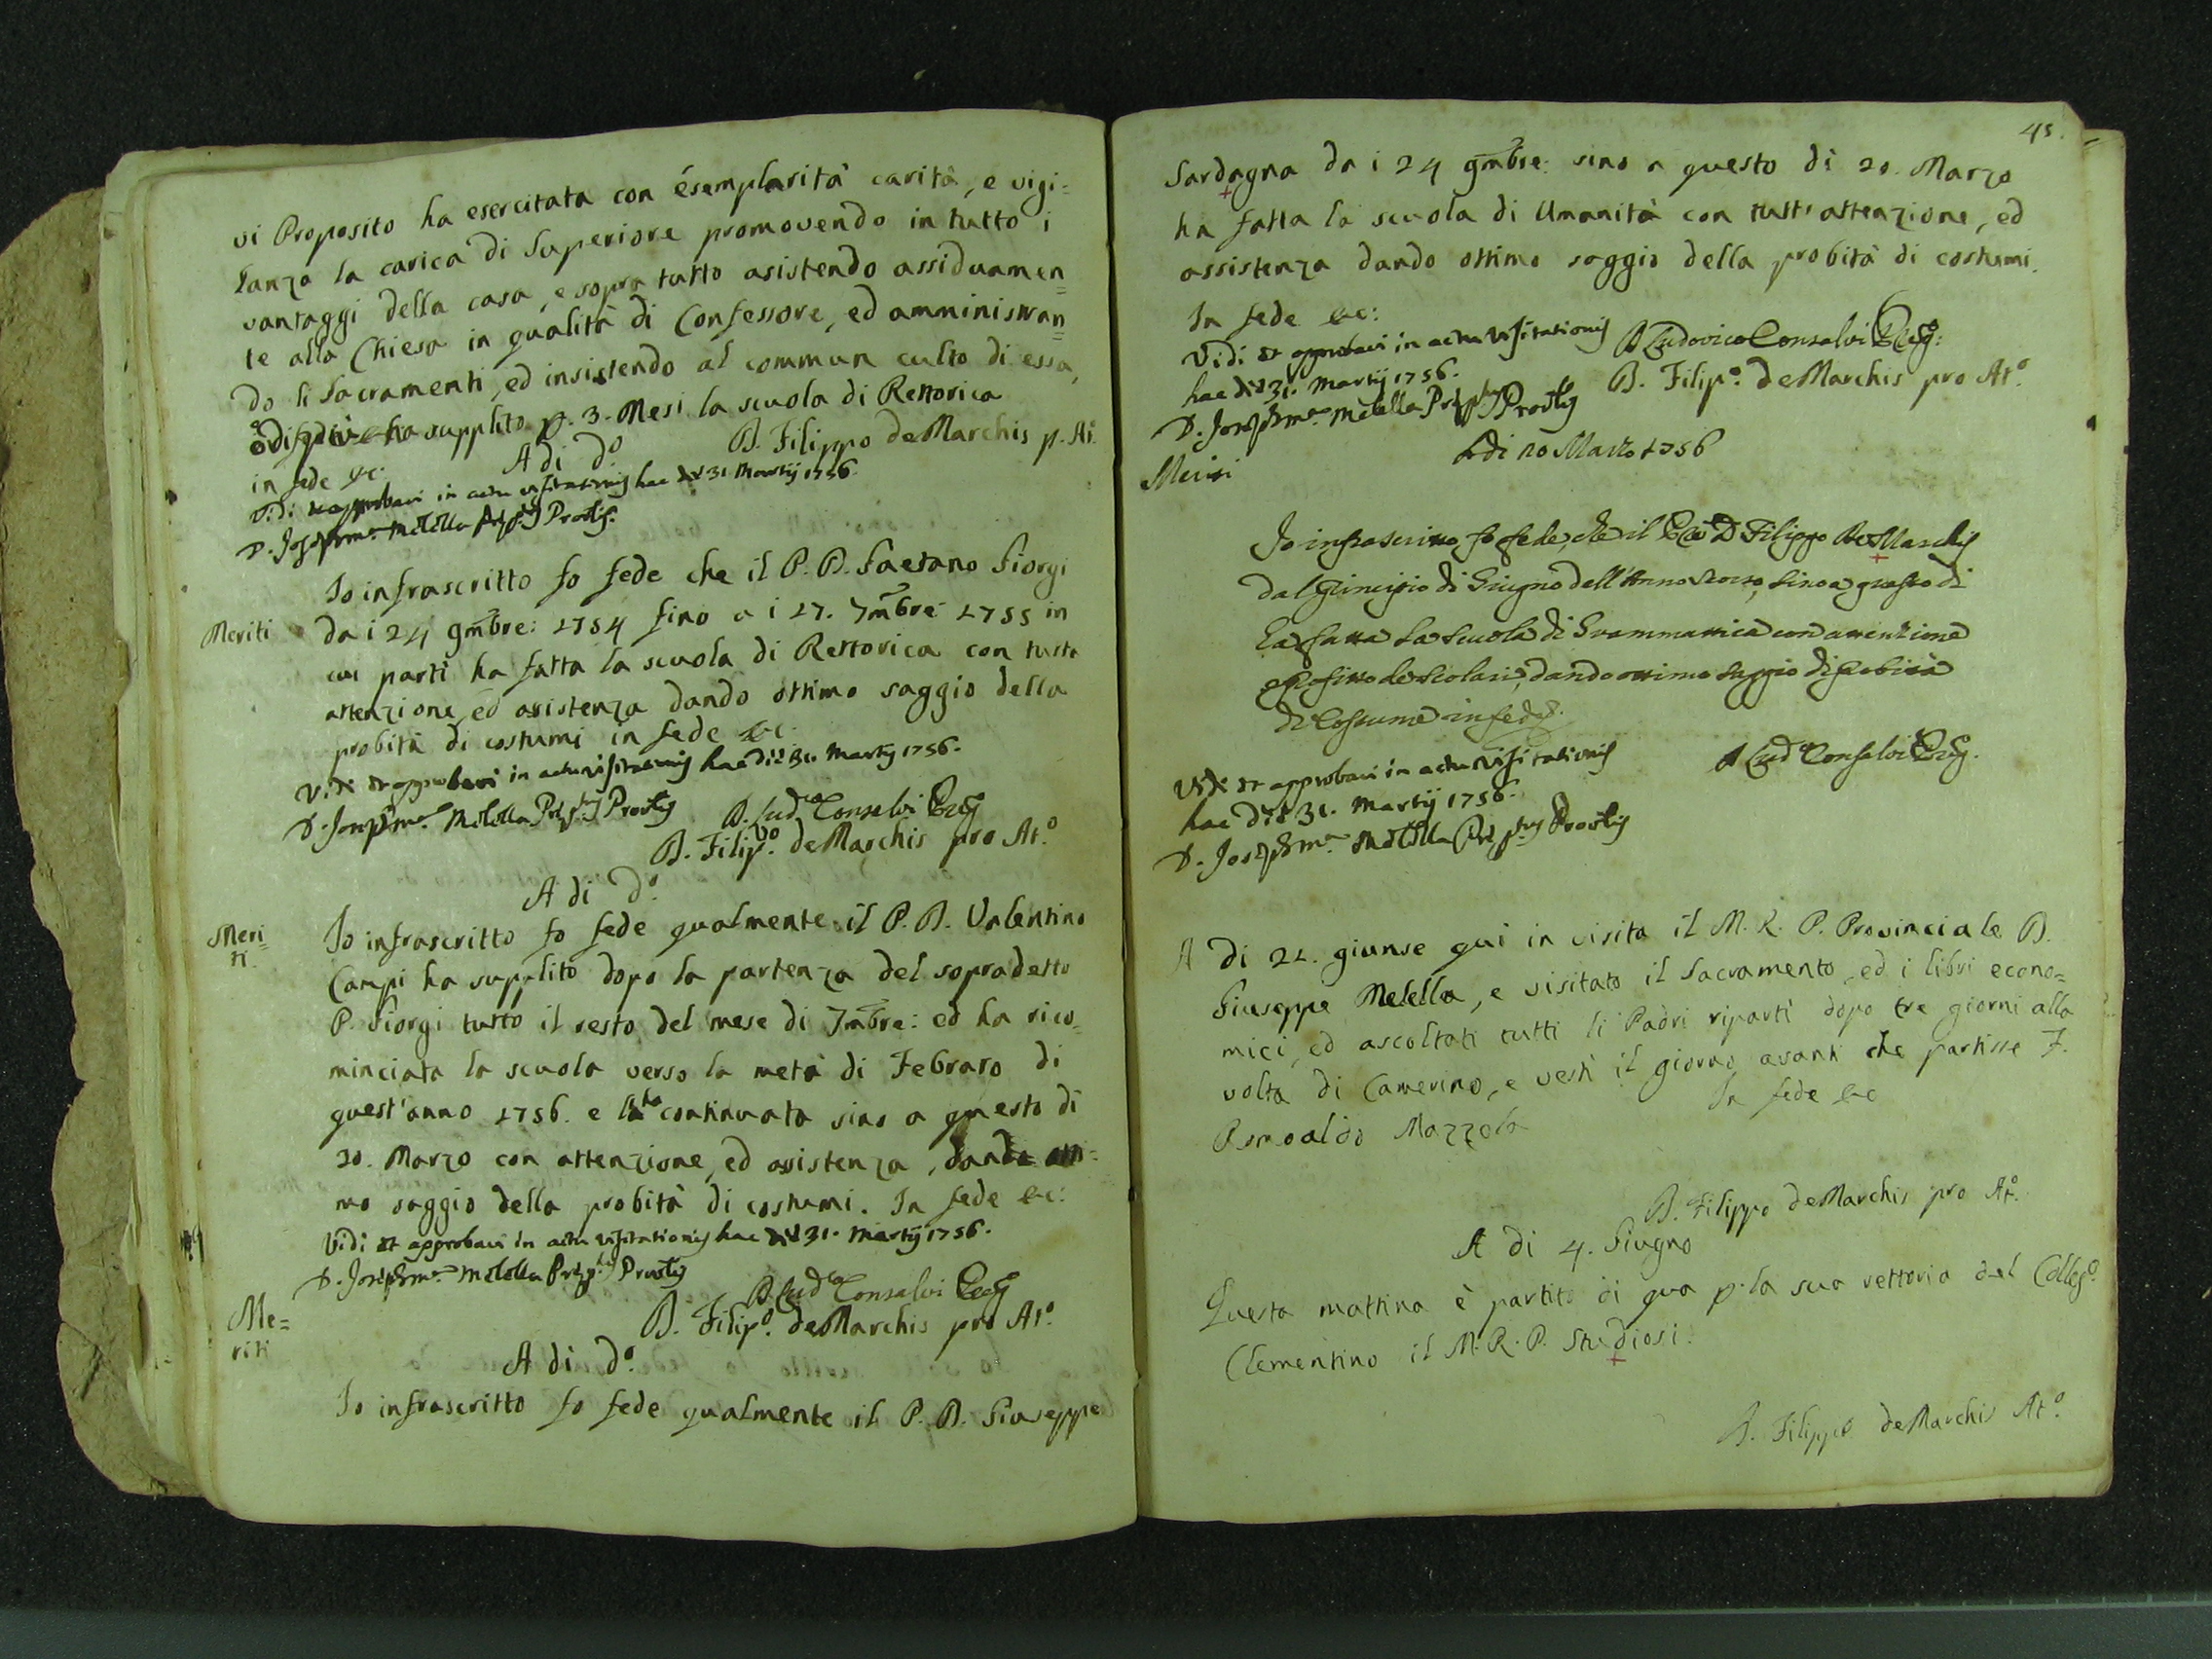 vi Proposito ha esercitata con esemplarità carità, e vigi=
lanza la carica di Superiore promovendo in tutto i
vantaggi della casa, e sopra tutto asistendo assiduamen=
te alla Chiesa in qualità di Confessore, ed amministran=
do li Sacramenti, ed insistendo al commun culto di essa,
ha supplito p. 3. Mesi la scuola di Rettorica
in fede &c. A di d.o D. Filippo deMarchis p. At.o
Vidi et approbavi in actu visitationis hac die 31 Martij 1756.
D. Joseph M.a Melella Prep.tus Prov.lis
Io infrascritto fo fede che il P. D. Gaetano Giorgi
Meriti da i 24 9mbre: 1754 fino a i 27. 7mbre 1755 in
cui partì ha fatta la scuola di Rettorica con tutta
attenzione, ed asistenza dando ottimo saggio della
probità di costumi in fede &c.
Vidi et approbavi in actu visitationis hac die 31. Martij 1756.
D. Joseph M.a Melella Prep.tus Prov.lis D. Lud.co Consalvi
D. Filip.o deMarchis pro At.o
A di d.o
Meri=
ti. Io infrascritto fo fede qualmente il P. D. Valentino
Campi ha supplito dopo la partenza del sopradetto
P. Giorgi tutto il resto del mese di 7mbre: ed ha rico=
minciata la scuola verso la metà di Febraro di
quest'anno 1756. e l'ha continuata sino a questo dì
20. Marzo con attenzione, ed asistenza, dando otti=
mo saggio della probità di costumi. In fede &c:
Vidi et approbavi in actu visitationis hac die 31. Martij 1756.
D. Joseph M.a Melella Prep.tus Prov.lis
D. Lud.co Consalvi
D. Filip.o deMarchis pro At.o
Me=
riti
A di d.o
Io infrascritto fo fede qualmente il P. D. Giuseppe
45.
Sardagna da i 24 9mbre: sino a questo dì 20. Marzo
ha fatta la scuola di Umanità con tutt'attenzione, ed
assistenza dando ottimo saggio della probità di costumi.
In fede &c:
Vidi et approbavi in actu visitationis D Ludovico Consalvi
hac die 31. Martij 1756. D. Filip.o deMarchis pro At.o
D. Joseph M.a Melella Prep.tus Prov.lis
Adi 20 Marzo 1756
Meriti
Io infrascritto fo fede, che il D Filippo De Marchis
dal principio di Giugno dell'Anno scorso, sino a questo dì
ha fatta la Scuola di Grammatica con attenzione
e profitto de Scolari, dando ottimo saggio di probità
di Costume in fede &.
Vidi et approbavi in actu visitationis D Lud.co Consalvi
hac die 31. Martij 1756.
D. Joseph M.a Melella Prep.tus Prov.lis
A di 22. giunse quì in visita il M. R. P. Provinciale D.
Giuseppe Melella, e visitato il Sacramento, ed i libri econo=
mici, ed ascoltati tutti li Padri ripartì dopo tre giorni alla
volta di Camerino, e vestì il giorno avanti che partisse F.
Romoaldo Mazzola In fede &c
D. Filippo deMarchis pro At.o
A di 4. Giugno
Questa mattina è partito di qua p. la sua rettoria del Colleg.o
Clementino il M. R. P. Studiosi.
D. Filippo deMarchis At.o